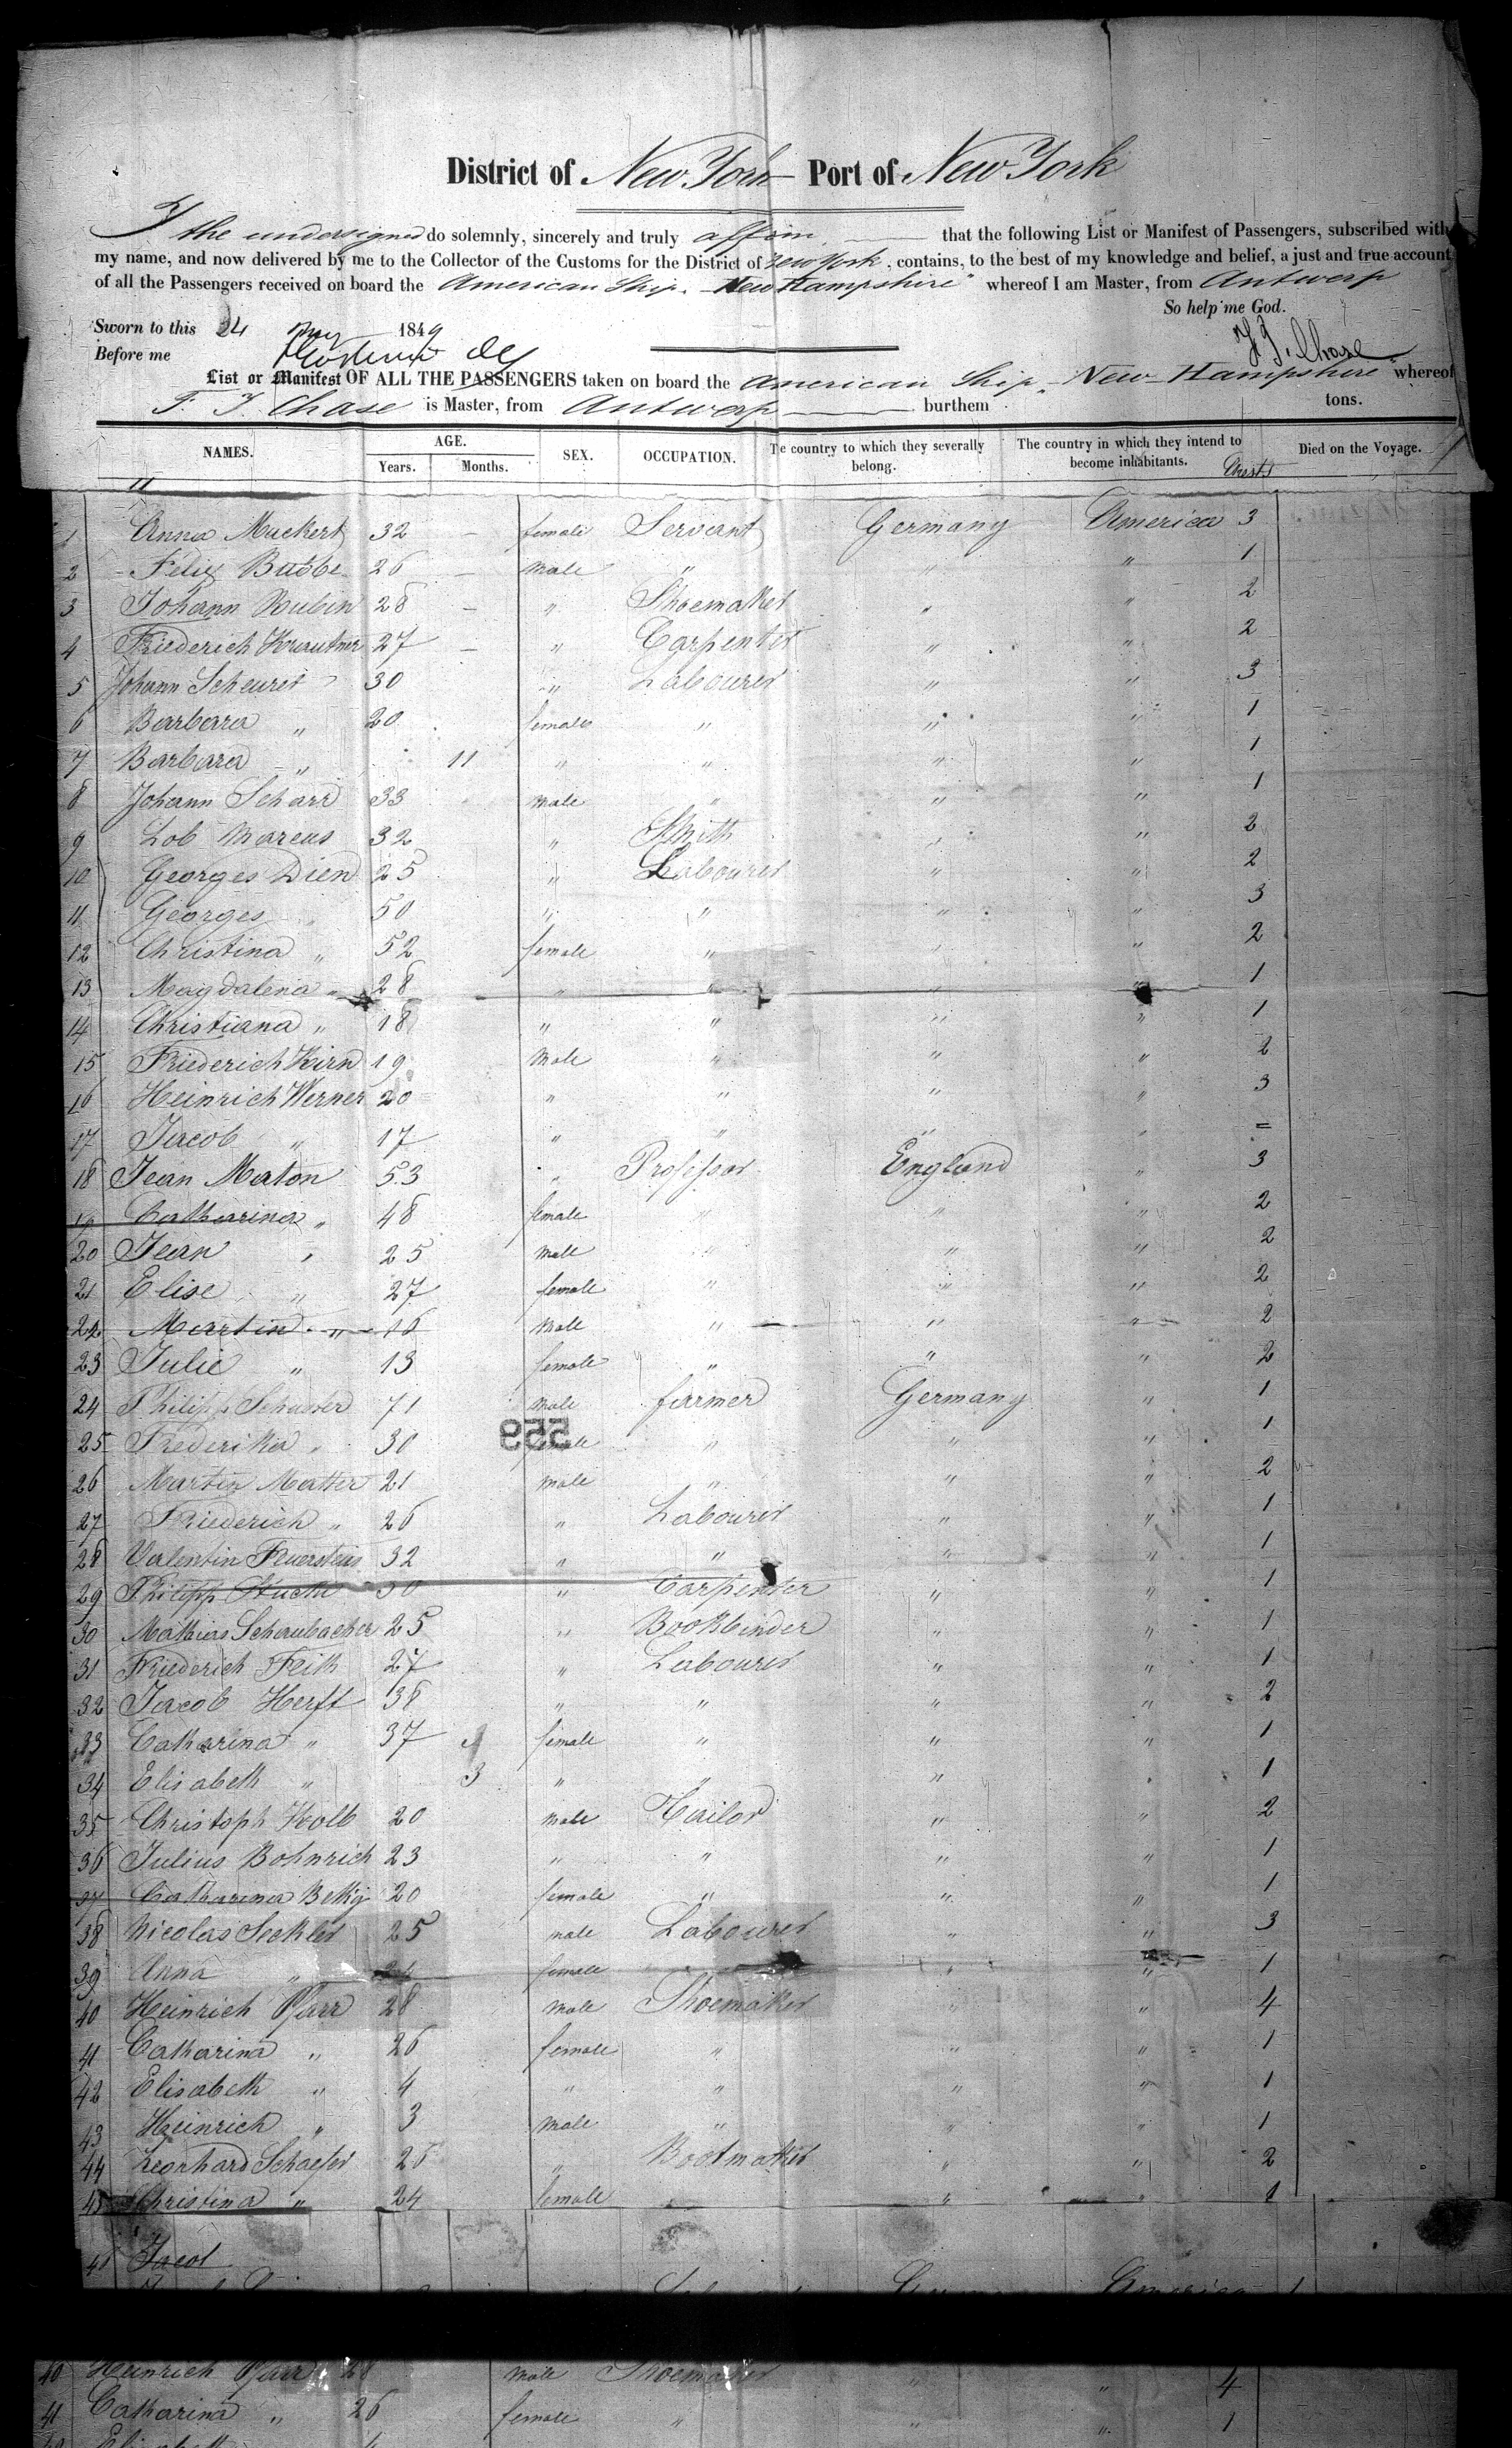 District of New York Port of New York
I the undersigned do solemnly, sincerely and truly affirm that the following List or Manifest of Passengers, subscribed with
my name, and now delivered by me to the Collector of the Customs for the District of New York, contains, to the best of my knowledge and belief, a just and true account
of all the Passengers received on board the American Ship "New Hampshire" whereof I am Master, from Antwerp
So help me God.
Sworn to this 24 May 1849
Before me
Chase
List or Manifest OF ALL THE PASSENGERS taken on board the American Ship New Hampshire whereof
Chase is Master, from Antwerp burthem tons.
NAMES. AGE. Years. Months. SEX. OCCUPATION. Te country to which they severally belong. The country in which they intend to become inhabitants. Chests Died on the Voyage.
1 Anna Muckert 32 – female Servant Germany America 3
2 Felix Bubbe 26 – male " " " 1
3 Johann Rubin 28 – " Shoemaker " " 2
4 Friederich 27 – " Carpenter " " 2
5 Johann Scheurer 30 " Labourer " " 3
6 Barbara " 20 female " " " 1
7 Barbara " 11 " " " " 1
8 Johann Scharr 33 male " " " 1
9 Lob Marcus 32 " Smith " " 2
10 Georges Dien 25 " Labourer " " 2
11 Georges " 50 " " " " 3
12 Christina " 52 female " " " 2
13 Magdalena " 28 " " " " 1
14 Christiana " 18 " " " " 1
15 Friederich Kirn 19 male " " " 2
16 Heinrich Werner 20 " " " " 3
17 Jacob " 17 " " " " =
18 Jean Maton 53 " Professor England " 3
19 Catharina " 48 female " " " 2
20 Jean " 25 male " " " 2
21 Elise " 27 female " " " 2
22 Martin " 16 male " " " 2
23 Julie " 13 female " " " 2
24 Philipp Schuster 71 male farmer Germany " 1
559
25 Frederika " 30 female " " " 1
26 Martin Matter 21 male " " " 2
27 Friederich " 26 " Labourer " " 1
28 Valentin Feuerstein 32 " " " " 1
29 Philipp 30 " Carpenter " " 1
30 Mathias Schaubacher 25 " Bookbinder " " 1
31 Friederich Feith 27 " Labourer " " 1
32 Jacob Herft 38 " " " " 2
33 Catharina " 37 female " " " 1
34 Elisabeth " 3 " " " 1
35 Christoph Kolb 20 male Tailor " " 2
36 Julius Bohnrich 23 " " " " 1
37 Catharina 20 female " " " 1
38 Nicolas Seckler 25 male Labourer " " 3
39 Anna " female " " 1
40 Heinrich Pfarr 28 male Shoemaker " " 4
41 Catharina " 26 female " " " 1
42 Elisabeth " 4 " " " " 1
43 Heinrich " 3 male " " " 1
44 Leonhard Schaefer 26 " Bootmaker " " 2
45 Christina " 24 female " " 1
46 Jacob
America 1
40 Heinrich Pfarr 28 male Shoemaker " " 4
41 Catharina " 26 female " " " 1